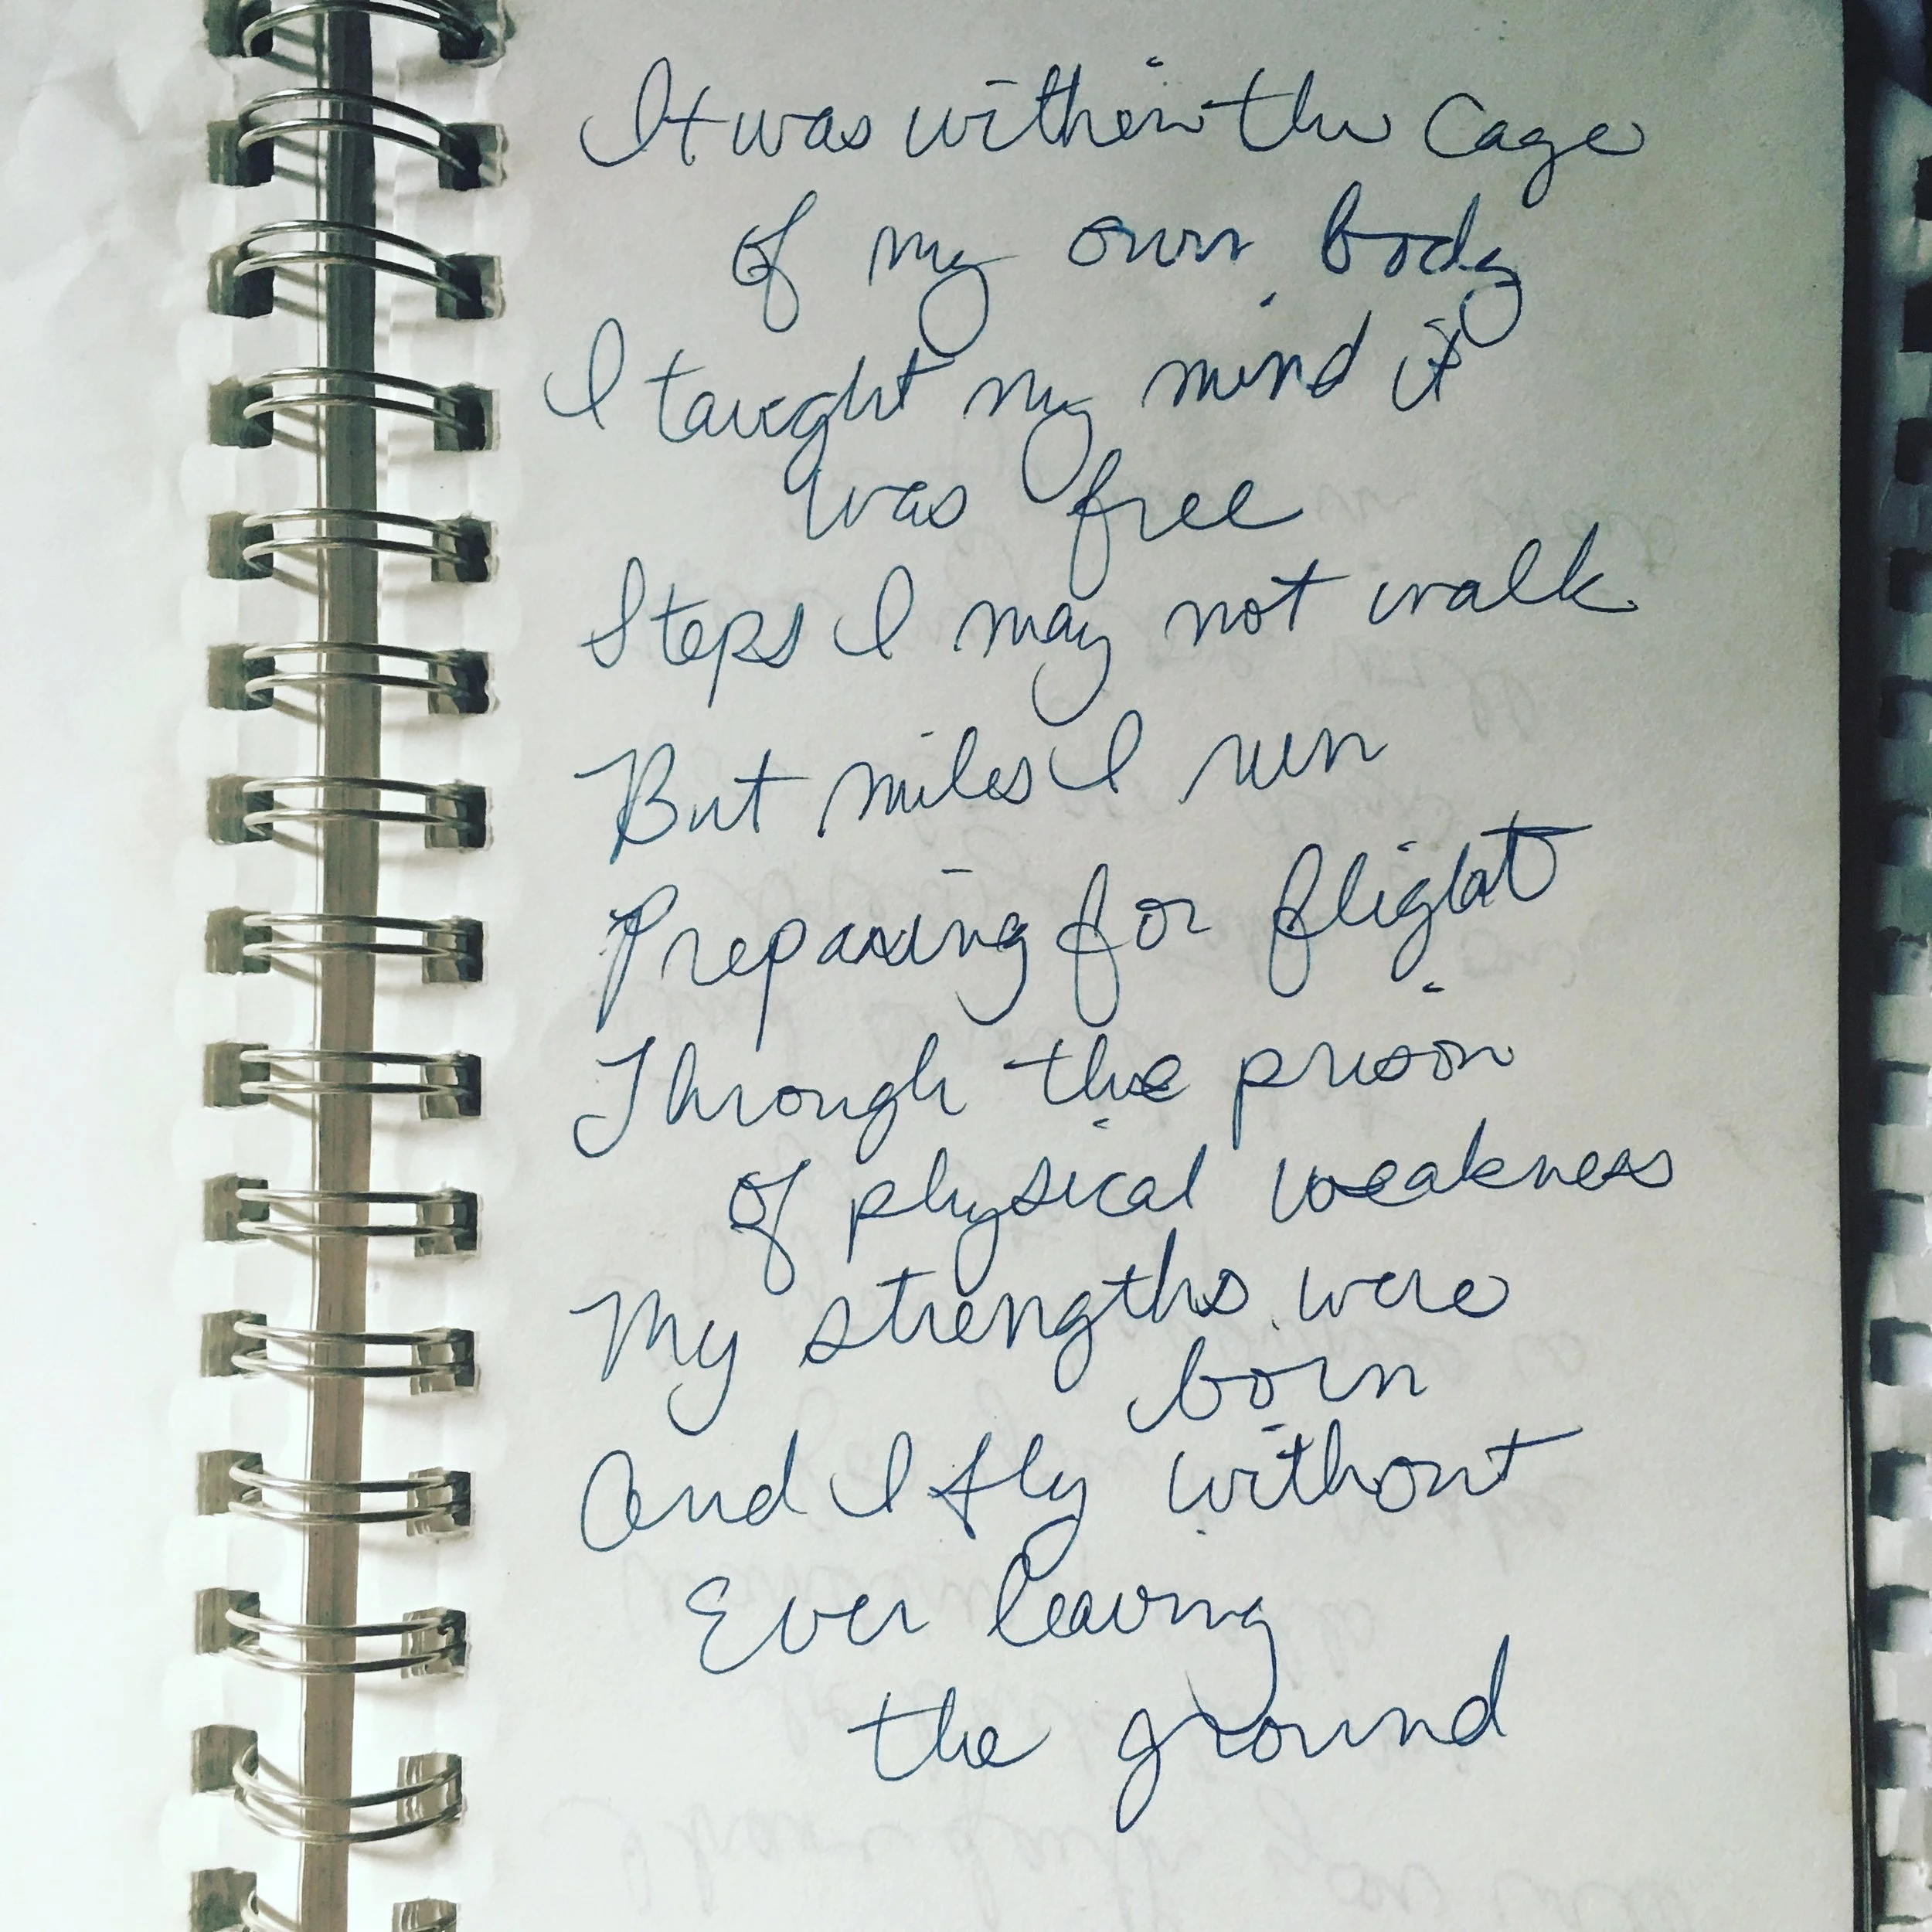 It was within the Cage
of my own body
I taught my mind it
was free
Steps I may not walk
But miles I run
Preparing for flight
Through the prison
of physical weakness
My strengths were
born
And I fly without
Ever leaving
the ground